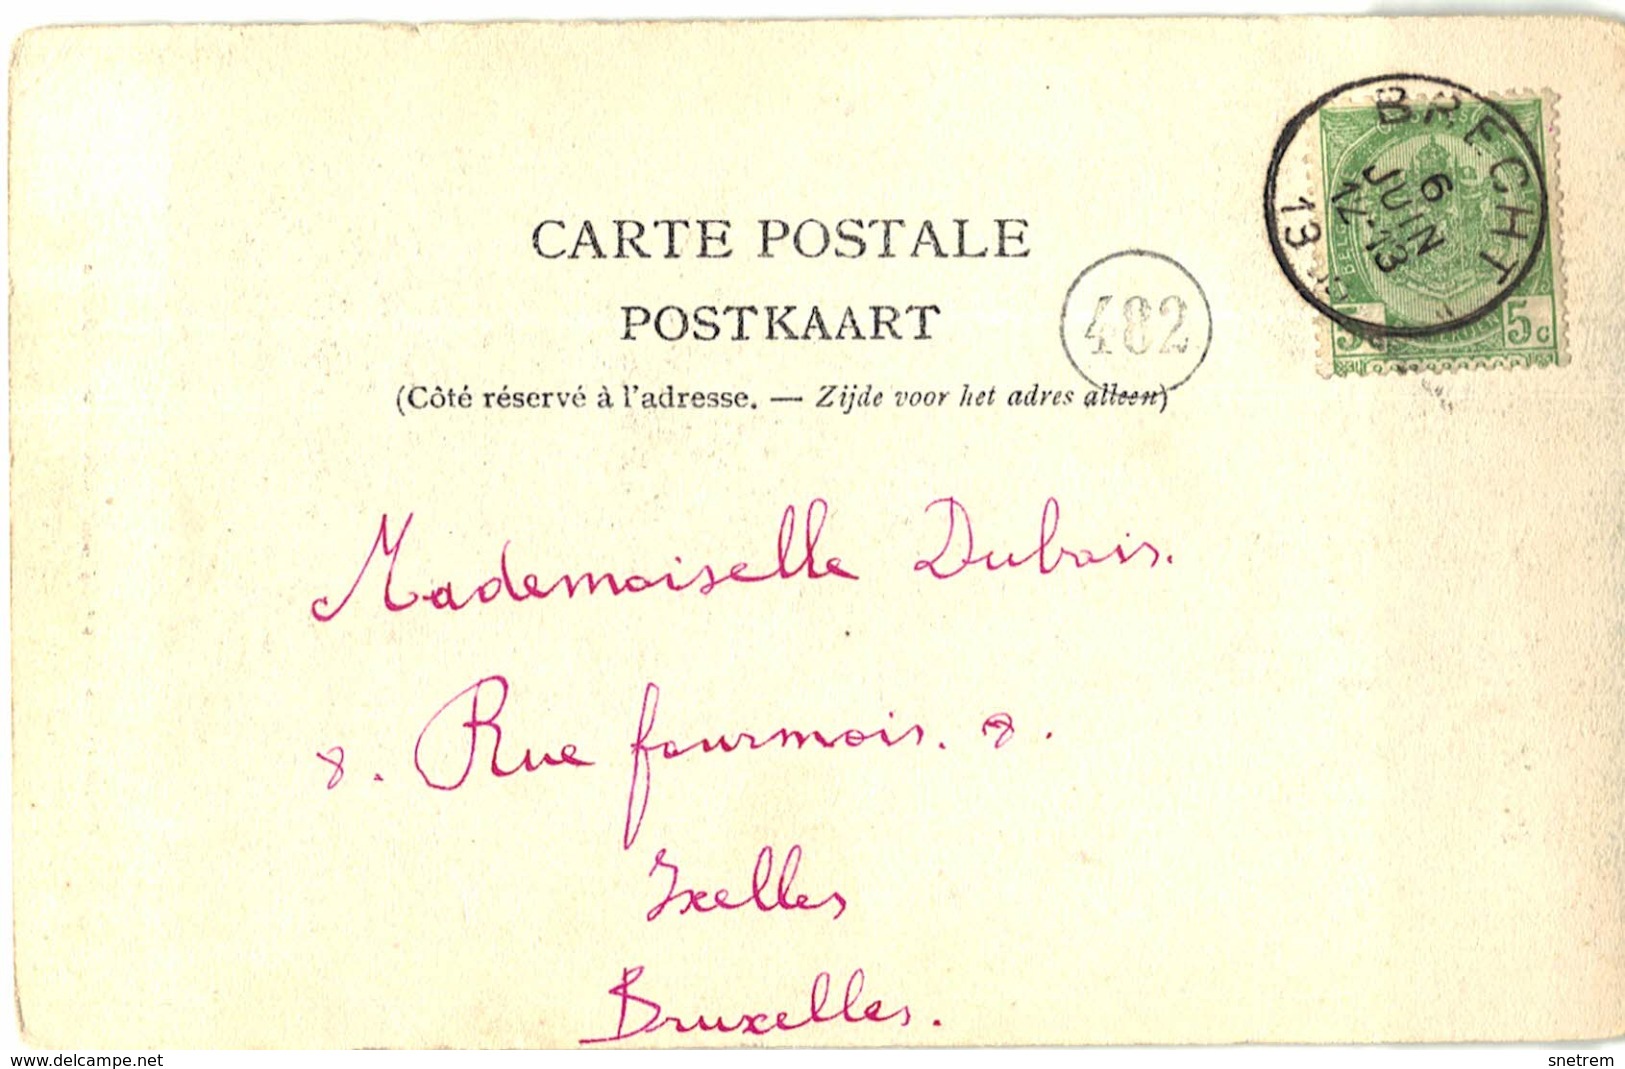 CARTE POSTALE
POSTKAART
(Côté réservé à l'adresse. — Zijde voor het adres alleen)
482
BRECHT
6
JUIN
12-13
13
5 5c
Mademoiselle Dubois.
8. Rue fourmois. 8.
Ixelles
Bruxelles.
www.delcampe.net
snetrem